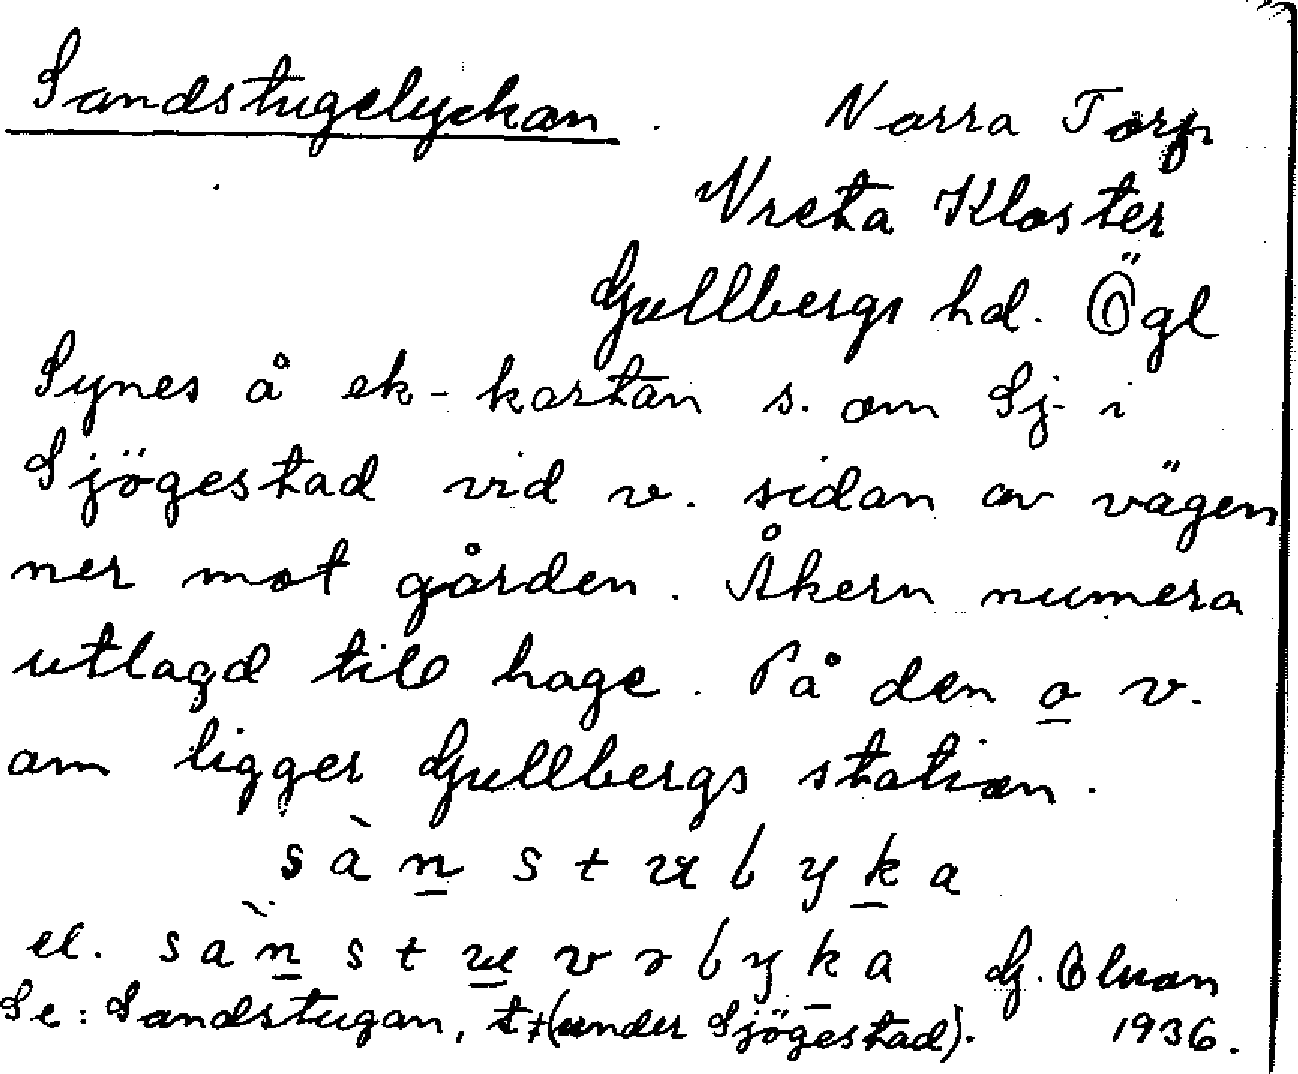 Sandstugelyckan. Norra Torp
Vreta Kloster
Gullbergs hd. Ögl
Synes å ek-kartan s. om Sj- i
Sjögestad vid v. sidan av vägen
ner mot gården. Åkern numera
utlagd till hage. På den o v.
om ligger Gullbergs station.
sàn st lyka
el. sàn st v lyka G. Olson
Se: Sandstugan, (under Sjögestad). 1936.